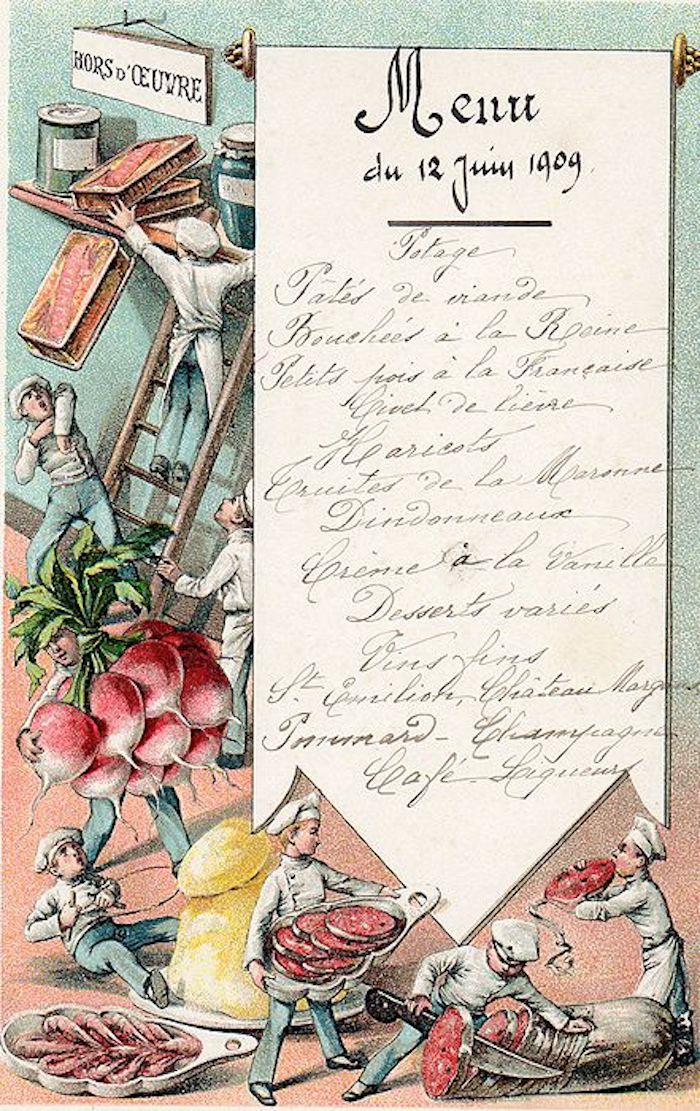 HORS D'ŒUVRE
Menu
du 12 Juin 1909.
Potage
Pâtés de viande
Bouchées à la Reine
Petits pois à la Française
Civet de lièvre
Haricots
Truites de la Maronne
Dindonneaux
Crème à la Vanille
Desserts variés
Vins fins
St Emilion, Château Margaux
Pommard - Champagne
Café - Liqueurs